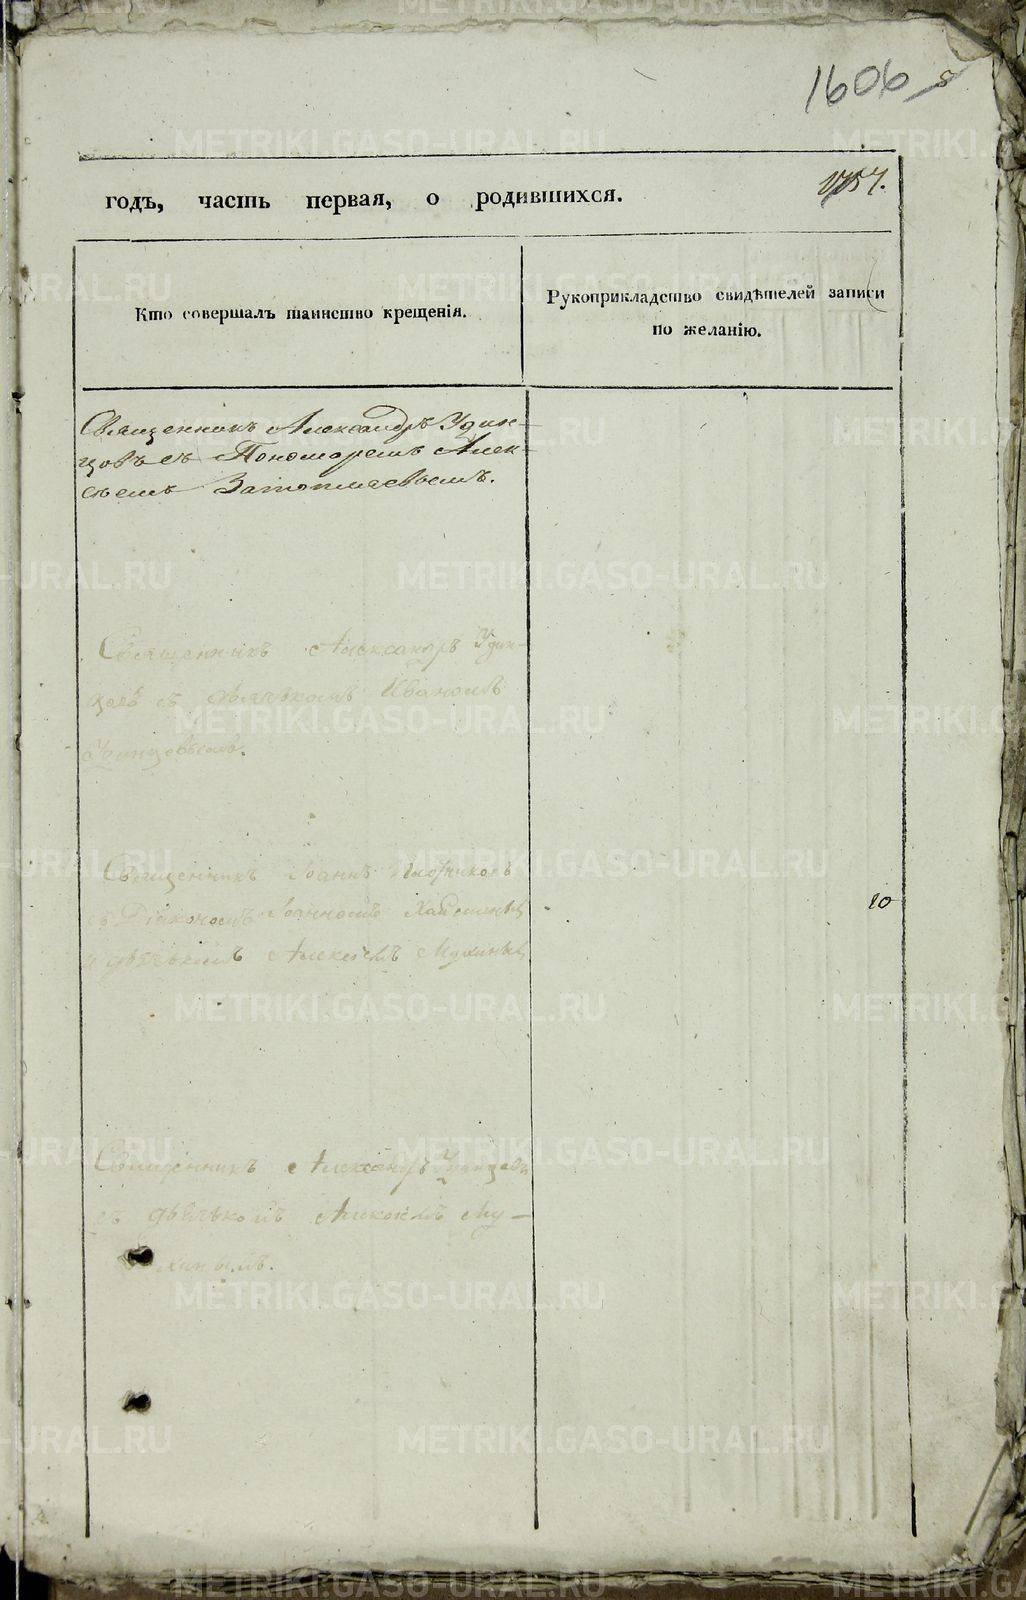 1606
годъ, часть первая, о родившихся.
Кто совершалъ таинство крещенія.
Рукоприкладство свидѣтелей записи
по желанію.
Священникъ Александръ Удин-
цовъ съ Пономаремъ Алек-
сѣемъ
Священникъ Александръ Удин-
цовъ съ дьячькомъ Иваномъ
Удинцовымъ.
Священникъ Іоаннъ
съ Діакономъ Іоанномъ
и дьячькомъ Алексѣемъ Мухинымъ
10
Священникъ Александръ Удинцовъ
съ дьячькомъ Алексѣемъ Му-
хинымъ.
METRIKI.GASO-URAL.RU